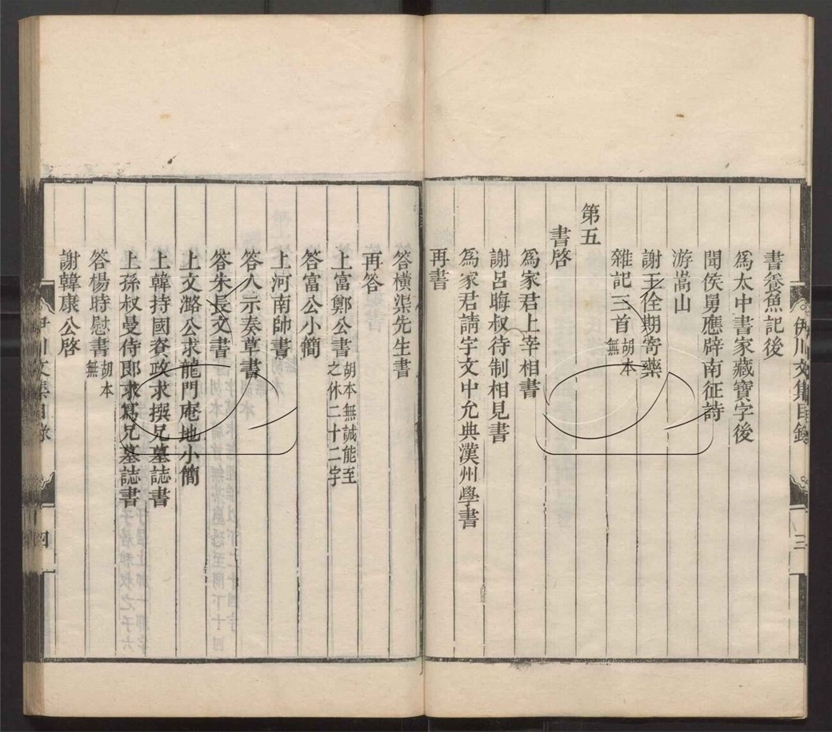 書養魚記後
爲太中書家藏寶字後
聞侯舅應辟南征詩
游嵩山
謝王佺期寄藥
雜記三首胡本無
第五
書啓
爲家君上宰相書
謝呂晦叔待制相見書
爲家君請宇文中允典漢州學書
再書
伊川文集目錄
三
答橫渠先生書
再答
上富鄭公書胡本無誠能至之休二十二字
答富公小簡
上河南帥書
答人示奏草書
答朱長文書
上文潞公求龍門庵地小簡
上韓持國資政求撰兄墓誌書
上孫叔曼侍郎求寫兄墓誌書
答楊時慰書胡本無
謝韓康公啓
伊川文集目錄
四